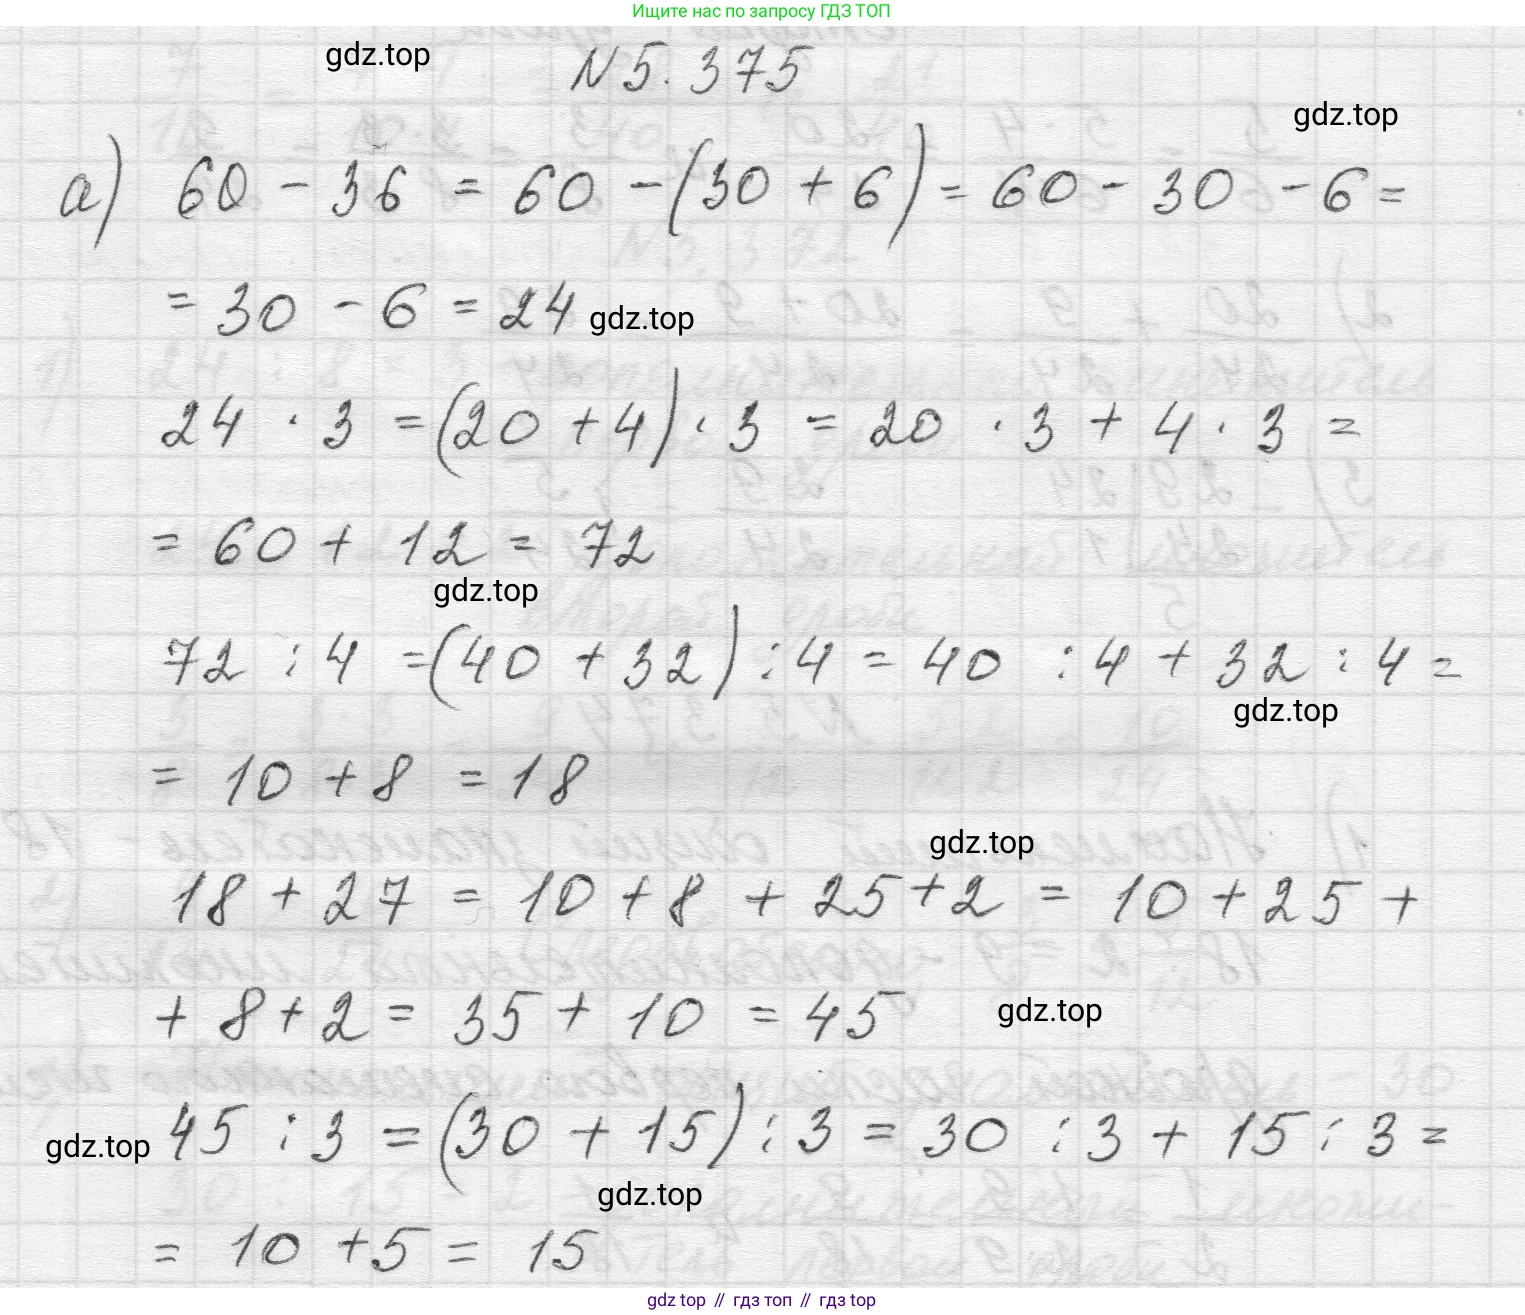 Ищите нас по запросу ГДЗ ТОП
gdz.top
N 5.375
gdz.top
а) 60 - 36 = 60 - (30 + 6) = 60 - 30 - 6 =
= 30 - 6 = 24
gdz.top
24 · 3 = (20 + 4) · 3 = 20 · 3 + 4 · 3 =
= 60 + 12 = 72
gdz.top
72 : 4 = (40 + 32) : 4 = 40 : 4 + 32 : 4 =
gdz.top
= 10 + 8 = 18
gdz.top
18 + 27 = 10 + 8 + 25 + 2 = 10 + 25 +
+ 8 + 2 = 35 + 10 = 45
gdz.top
45 : 3 = (30 + 15) : 3 = 30 : 3 + 15 : 3 =
gdz.top
gdz.top
= 10 + 5 = 15
gdz top // гдз топ // гдз top